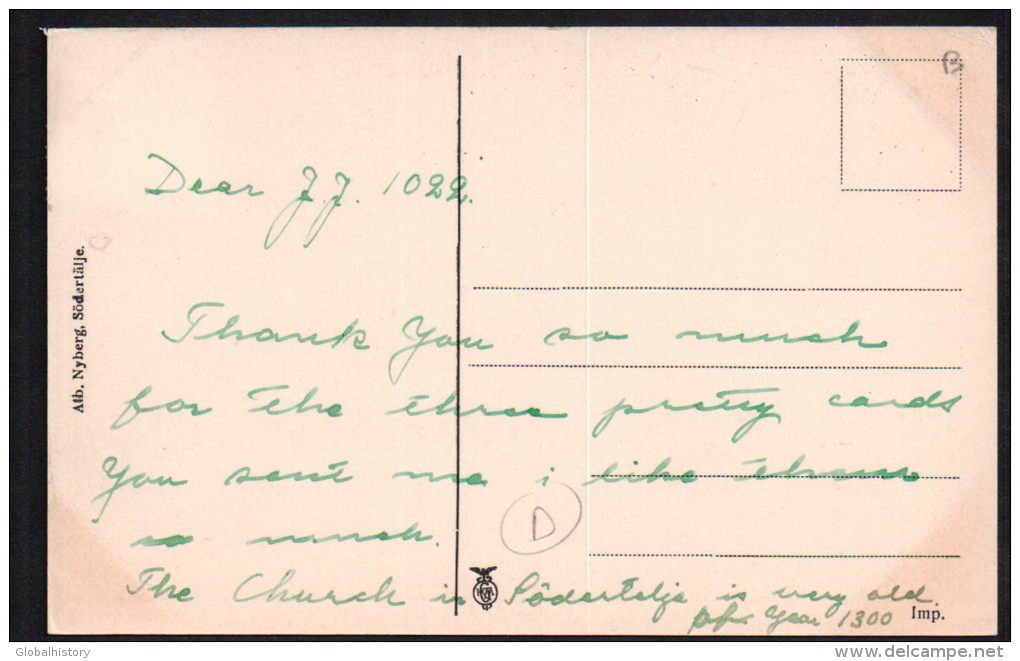 B
Dear J.J. 1022.
Alb. Nyberg, Södertälje.
Thank You so much
for the three pretty cards
You sent me i like them
so much.
D
The Church in Södertelje is very old.
Year 1300
Imp.
© Globalhistory
delcampe.net